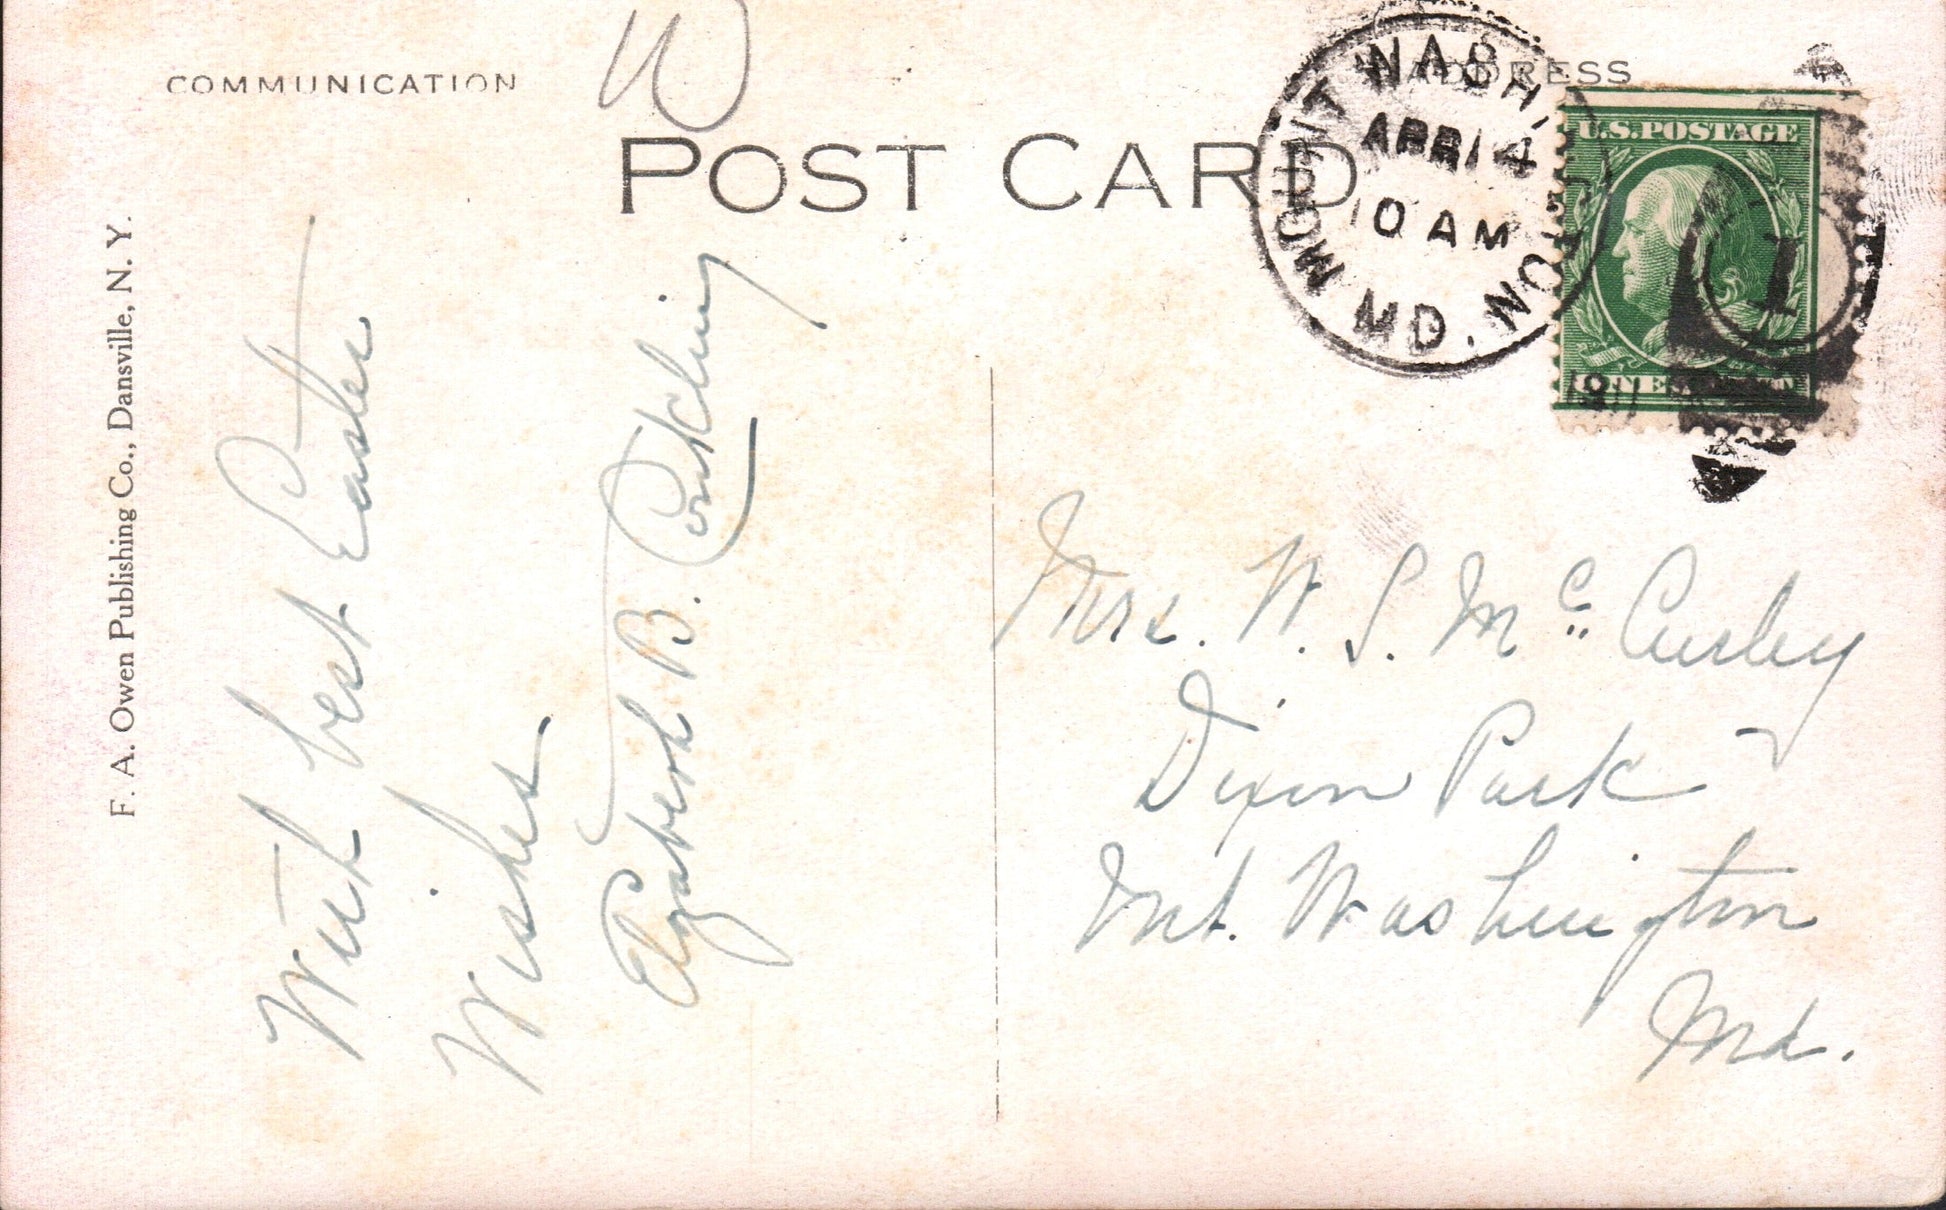 COMMUNICATION
ADDRESS
POST CARD
F. A. Owen Publishing Co., Dansville, N. Y.
MOUNT WASHINGTON
APR 14
10 AM
MD.
1911
U.S. POSTAGE
1
With best Easter
Wishes
Elizabeth B. Conkling
Mrs. W. S. Mc Curley
Dixon Park
Mt. Washington
Md.